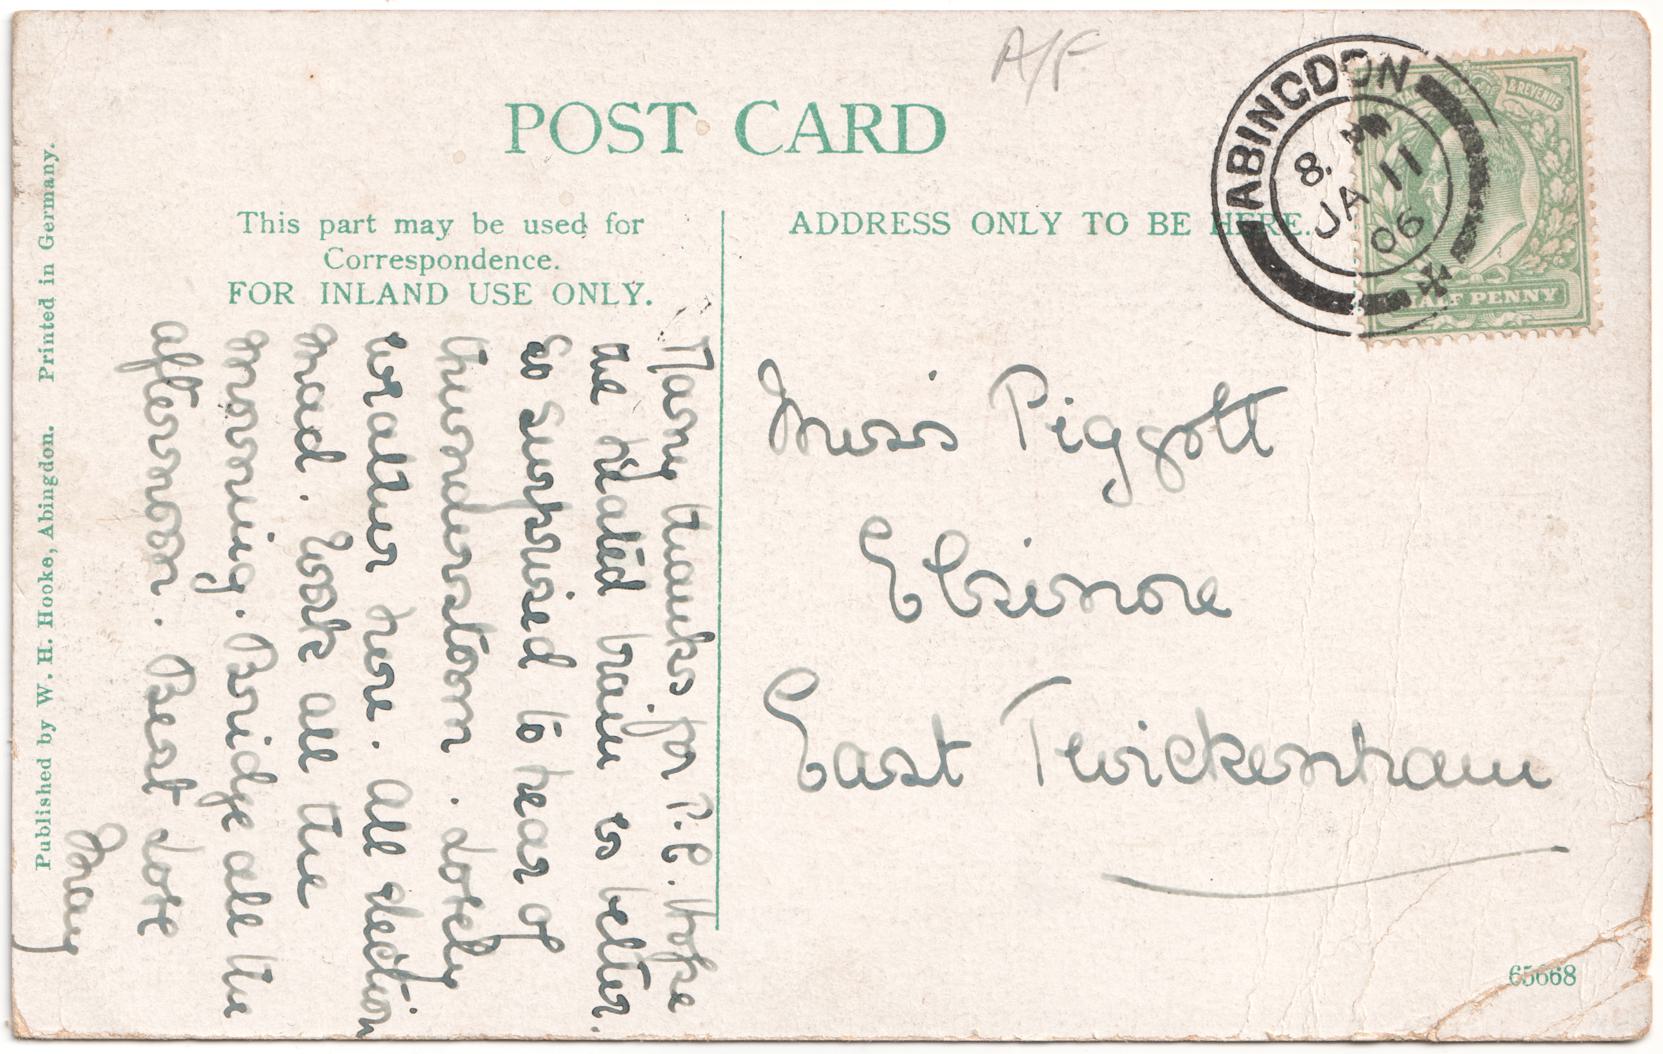 A/F
POST CARD
This part may be used for
Correspondence.
FOR INLAND USE ONLY.
ADDRESS ONLY TO BE HERE.
ABINGDON
8. A
JA 11
06
& REVENUE
HALF PENNY
Miss Piggott
Elsinore
East Twickenham
Many thanks for P.C. Hope
the heated brain is better.
So surprised to hear of
thunderstorm. Lovely
weather here. All election
mad. Work all the
morning. Bridge all the
afternoon. Best love
May
Published by W. H. Hooke, Abingdon. Printed in Germany.
65668